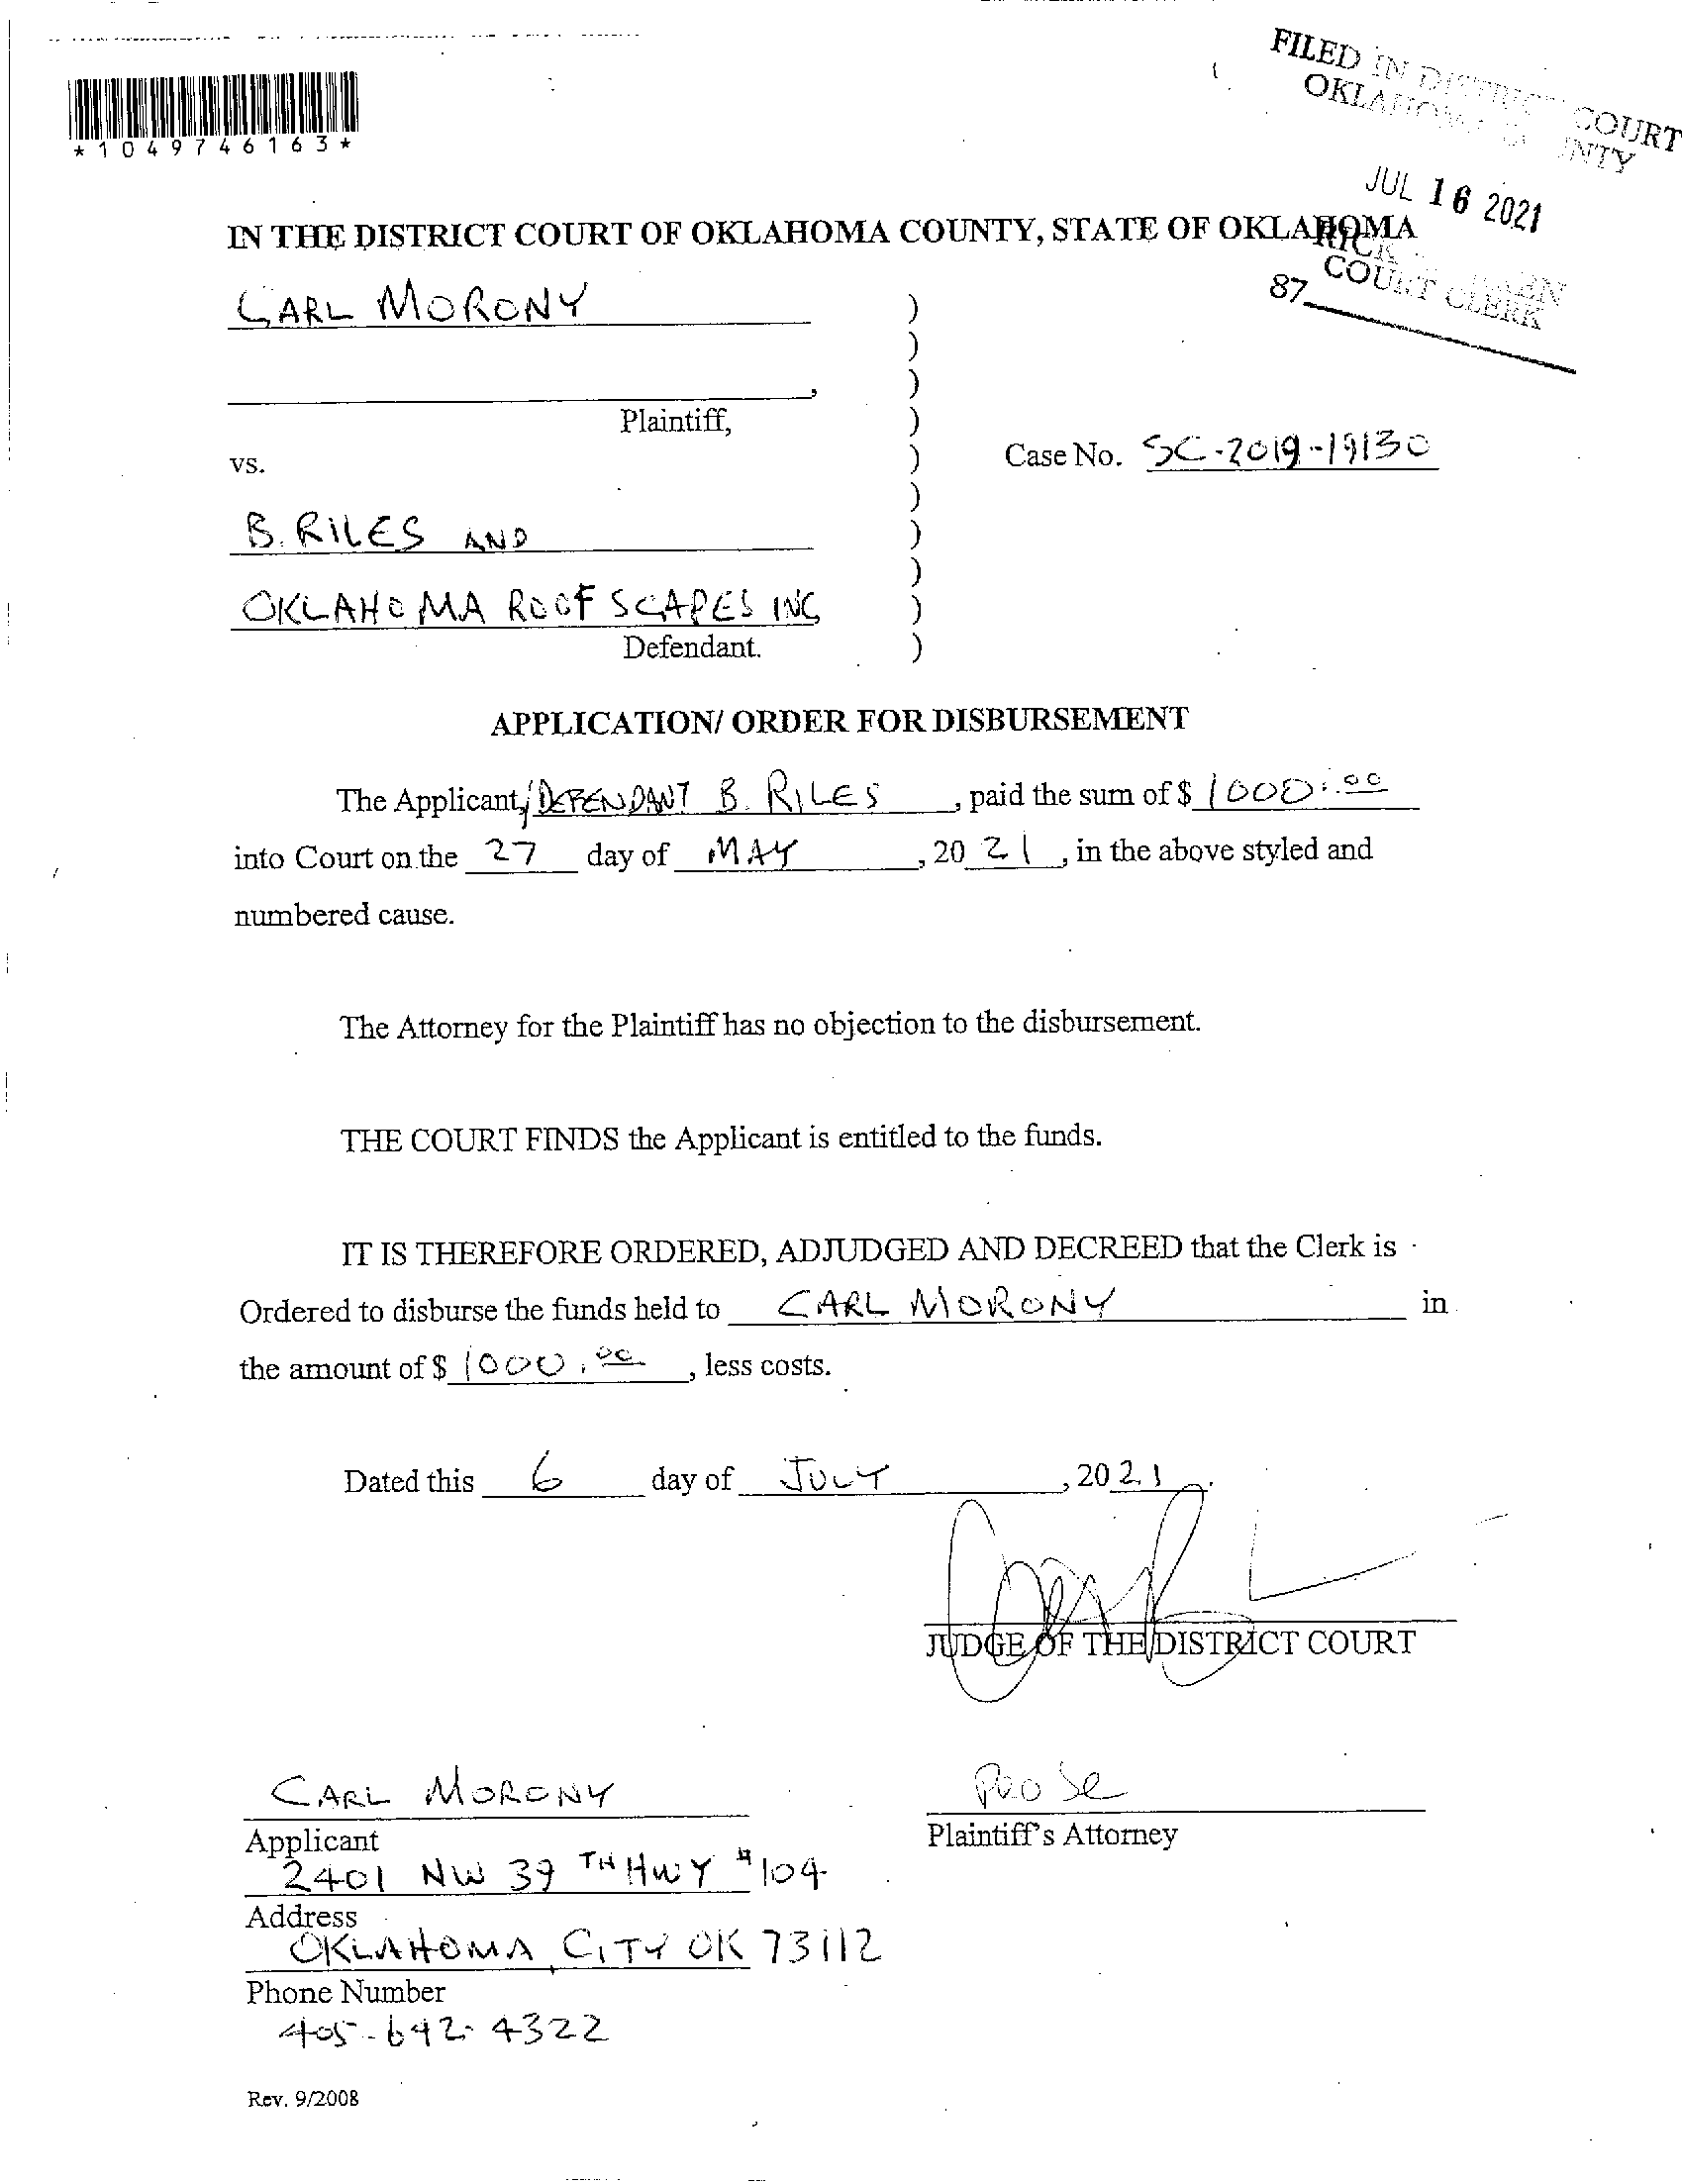 *1049746163*
FILED IN DISTRICT COURT
OKLAHOMA COUNTY
JUL 16 2021
RICK
COURT CLERK
87
IN THE DISTRICT COURT OF OKLAHOMA COUNTY, STATE OF OKLAHOMA
CARL MORONY )
)
, )
Plaintiff, )
vs. ) Case No. SC-2019-19130
)
B. RILES AND )
)
OKLAHOMA ROOF SCAPES INC )
Defendant. )
APPLICATION/ ORDER FOR DISBURSEMENT
The Applicant, DEFENDANT B. RILES, paid the sum of $ 1000.00
into Court on the 27 day of MAY, 20 21, in the above styled and
numbered cause.
The Attorney for the Plaintiff has no objection to the disbursement.
THE COURT FINDS the Applicant is entitled to the funds.
IT IS THEREFORE ORDERED, ADJUDGED AND DECREED that the Clerk is
Ordered to disburse the funds held to CARL MORONY in
the amount of $ 1000.00, less costs.
Dated this 6 day of JULY, 2021.
JUDGE OF THE DISTRICT COURT
CARL MORONY
Applicant
Pro Se
Plaintiff's Attorney
2401 NW 39TH HWY #104
Address
OKLAHOMA CITY OK 73112
Phone Number
405-642-4322
Rev. 9/2008